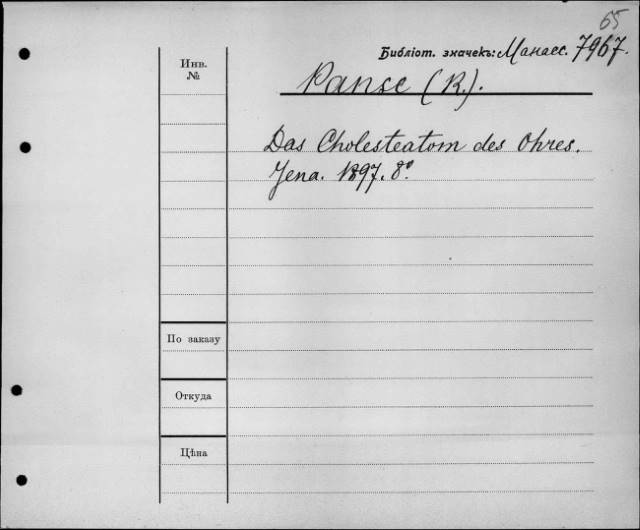 65
Инв.
№
Библіот. значекъ: Манасс. 7967.
Panse (R.).
Das Cholesteatom des Ohres.
Jena. 1897. 8°
По заказу
Откуда
Цѣна